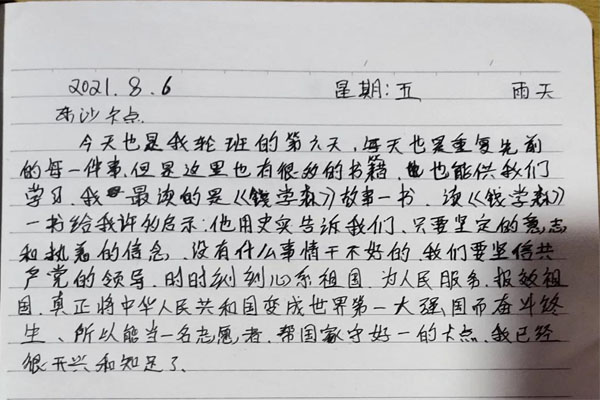 2021.8.6 星期:五 雨天
东沙卡点.
今天也是我轮班的第六天,每天也是重复先前
的每一件事.但是这里也有很多的书籍.也能供我们
学习.我最读的是《钱学森》故事一书.读《钱学森》
一书给我许多启示:他用史实告诉我们.只要坚定的意志
和执着的信念.没有什么事情干不好的.我们要坚信共
产党的领导.时时刻刻心系祖国.为人民服务.报效祖
国.真正将中华人民共和国变成世界第一大强国而奋斗终
生、所以能当一名志愿者.帮国家守好一的卡点.我已经
很开兴和知足了.